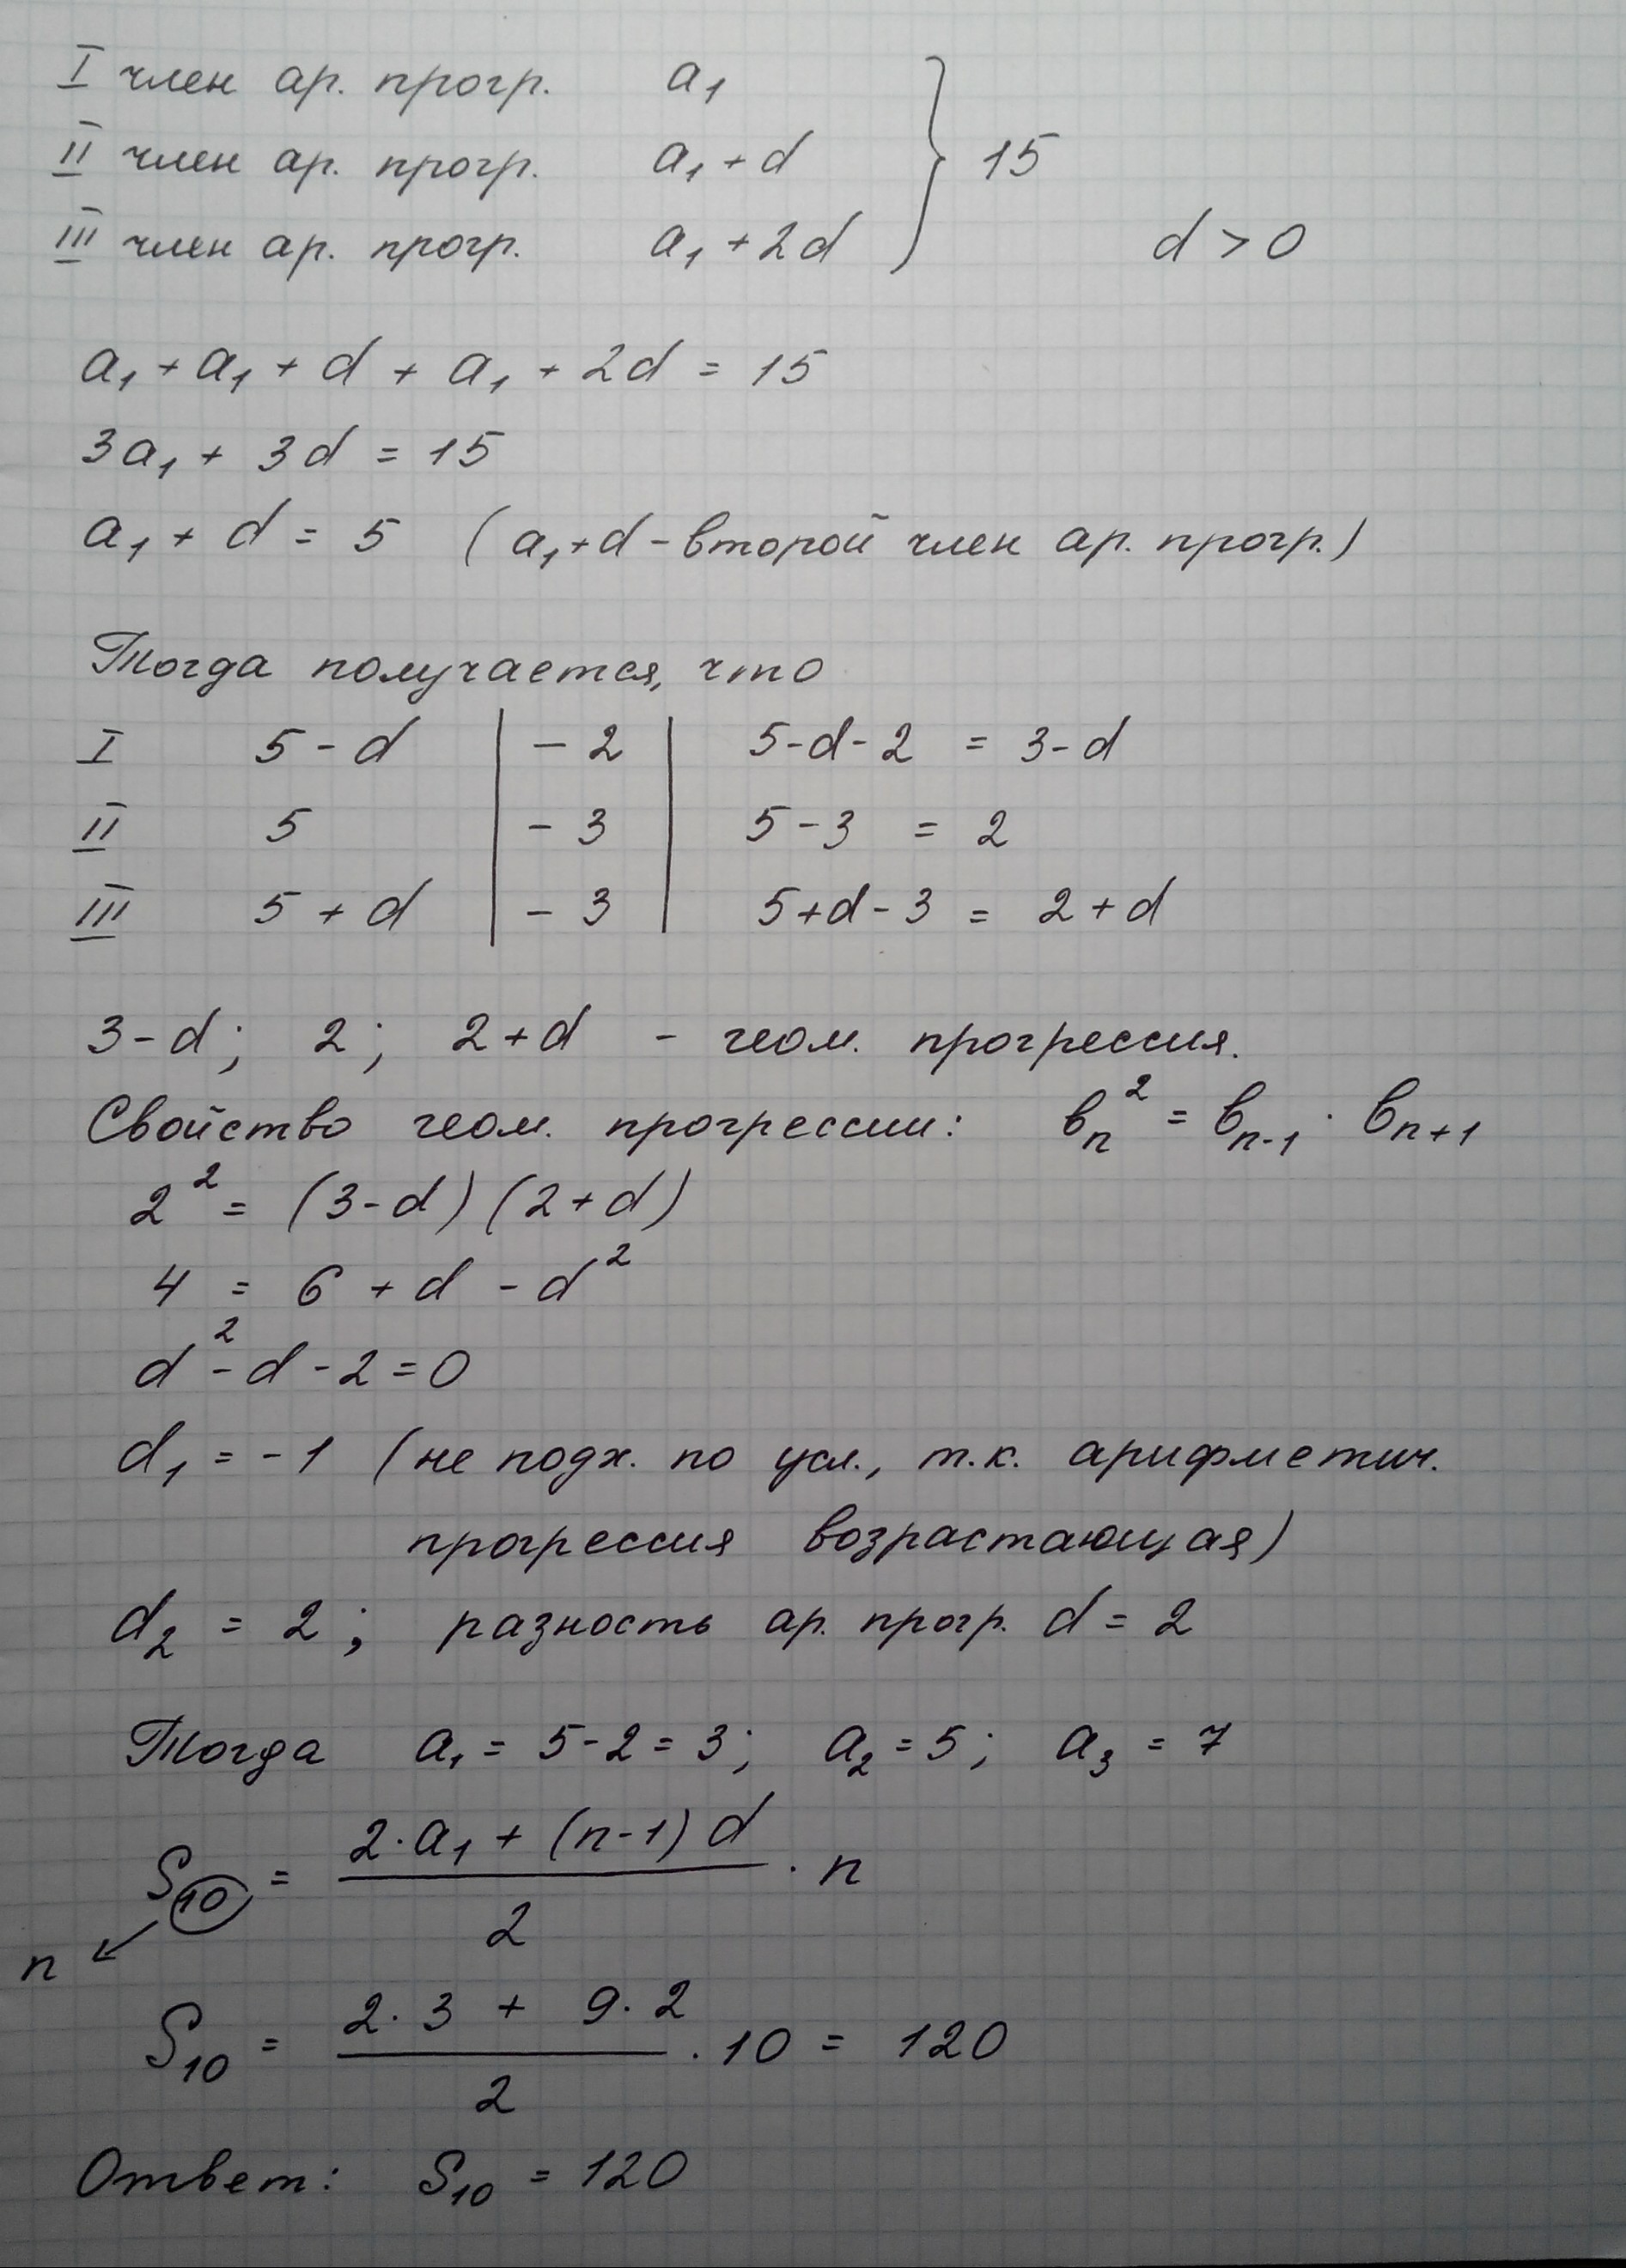 I член ар. прогр. a₁
II член ар. прогр. a₁ + d } 15
III член ар. прогр. a₁ + 2d d > 0
a₁ + a₁ + d + a₁ + 2d = 15
3a₁ + 3d = 15
a₁ + d = 5 (a₁+d - второй член ар. прогр.)
Тогда получается, что
I 5 - d | - 2 | 5-d-2 = 3-d
II 5 | - 3 | 5-3 = 2
III 5 + d | - 3 | 5+d-3 = 2+d
3-d; 2; 2+d - геом. прогрессия.
Свойство геом. прогрессии: bₙ² = bₙ₋₁ · bₙ₊₁
2² = (3-d)(2+d)
4 = 6 + d - d²
d² - d - 2 = 0
d₁ = -1 (не подх. по усл., т.к. арифметич.
прогрессия возрастающая)
d₂ = 2; разность ар. прогр. d = 2
Тогда a₁ = 5-2 = 3; a₂ = 5; a₃ = 7
S₁₀ = (2·a₁ + (n-1)d)/2 · n
n
S₁₀ = (2·3 + 9·2)/2 · 10 = 120
Ответ: S₁₀ = 120